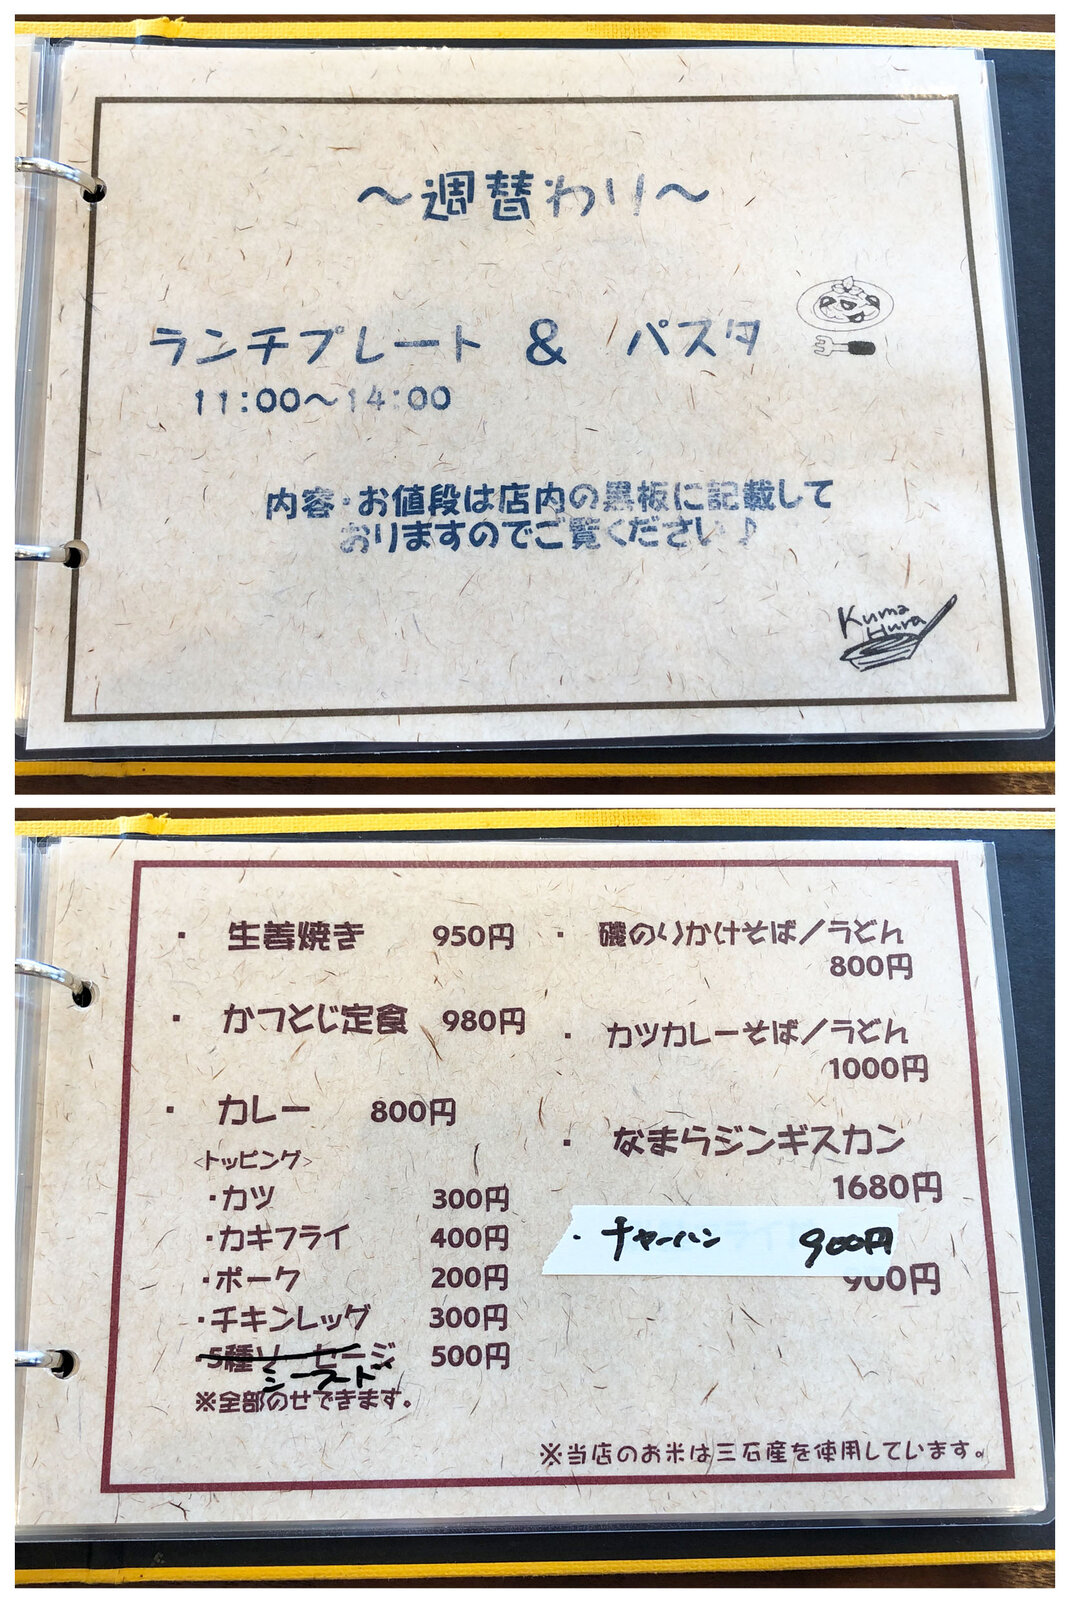 ～週替わり～
ランチプレート ＆ パスタ
11:00～14:00
内容・お値段は店内の黒板に記載して
おりますのでご覧ください♪
Kuma
Hura
・生姜焼き 950円
・かつとじ定食 980円
・カレー 800円
<トッピング>
・カツ 300円
・カキフライ 400円
・ポーク 200円
・チキンレッグ 300円
・5種ソーセージ 500円
シーフード
※全部のせできます。
・磯のりかけそば/うどん
800円
・カツカレーそば/うどん
1000円
・なまらジンギスカン
1680円
・チャーハン 900円
900円
※当店のお米は三石産を使用しています。